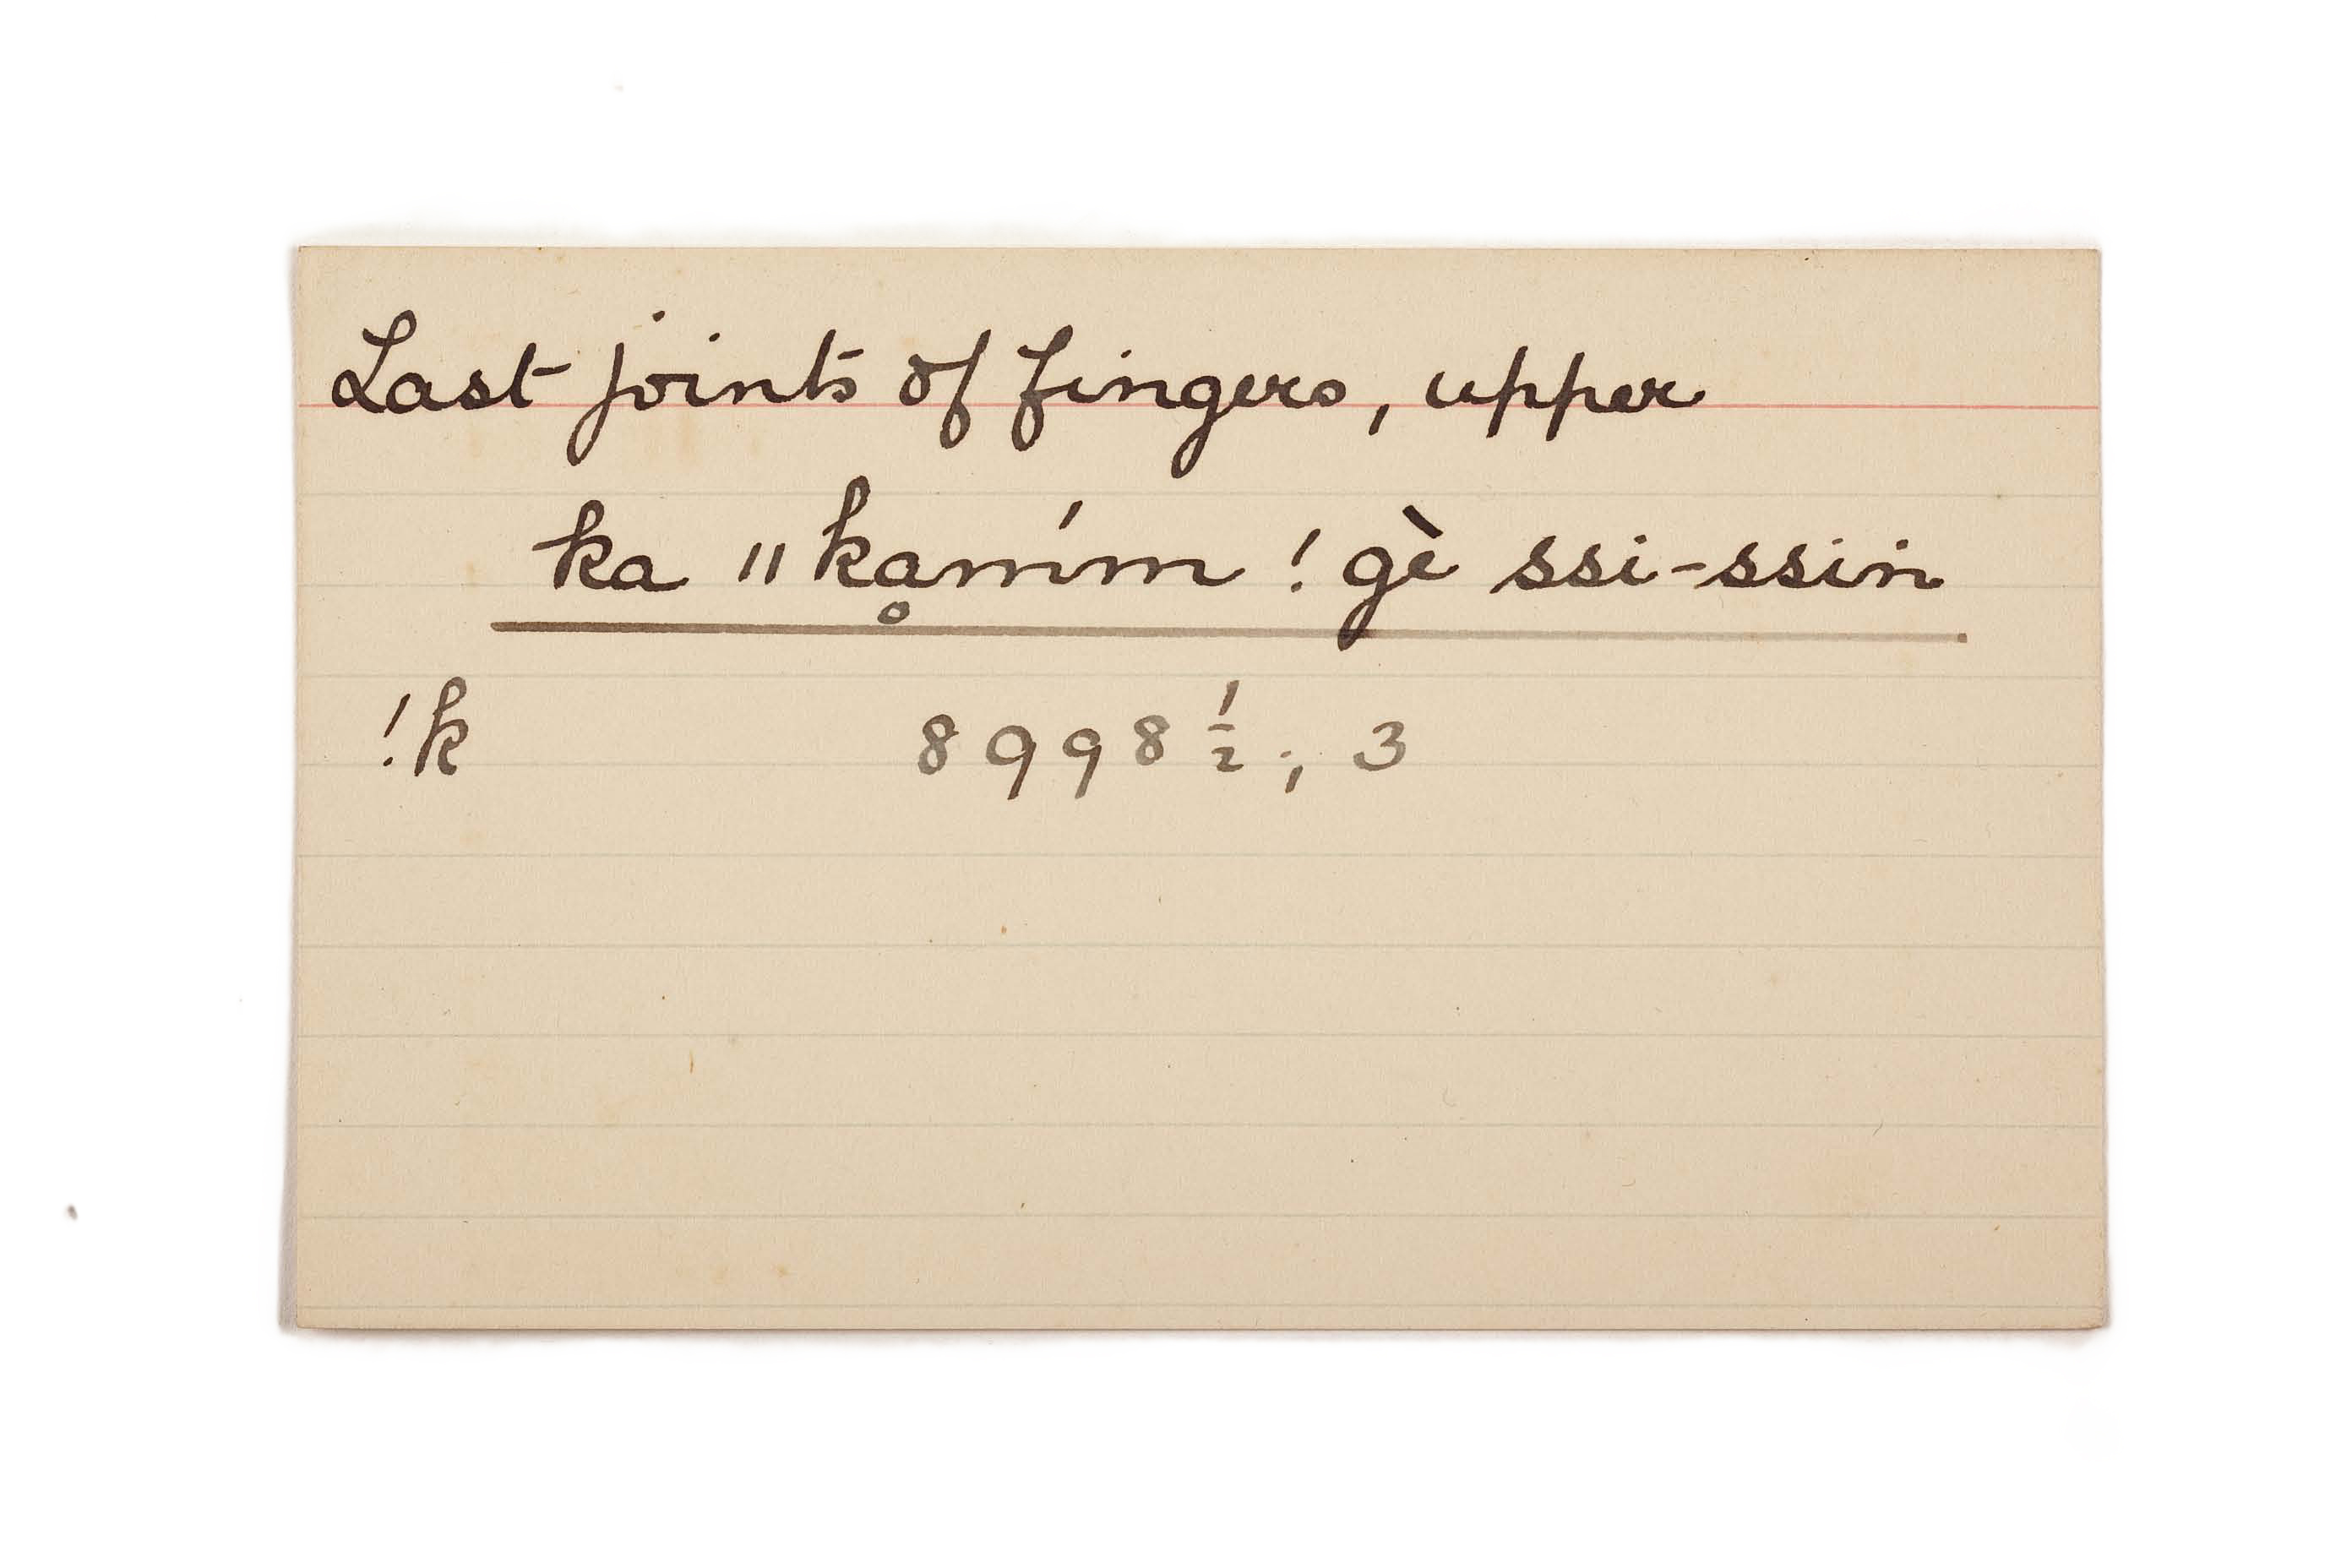 Last joints of fingers, upper
ka ‖ kḁmḿm ! gè ssi-ssin
!k 8998½; 3